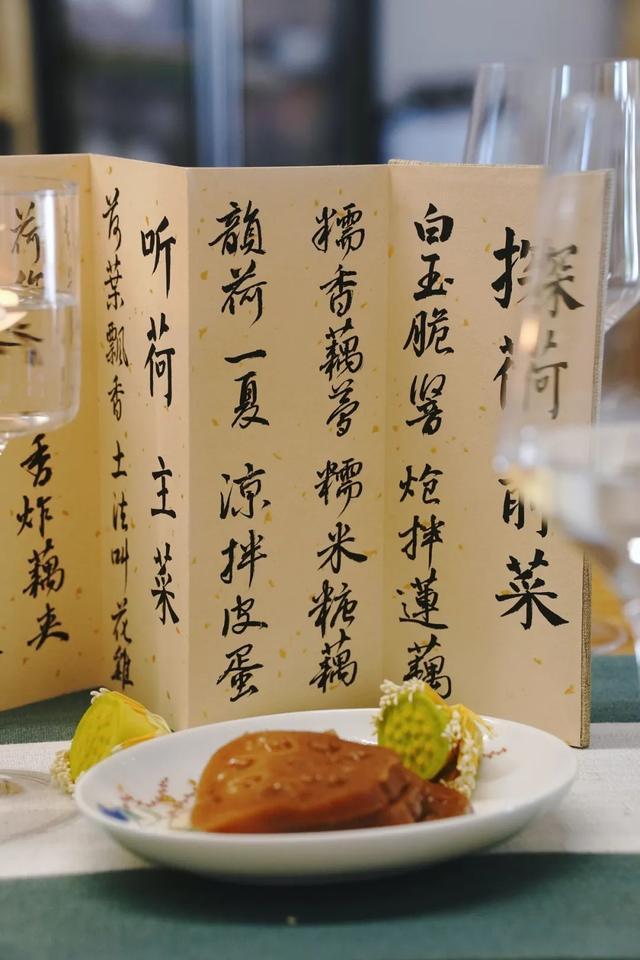 探荷 前菜
白玉脆 炝拌蓮藕
糯香藕 糯米糖藕
韻荷一夏 涼拌皮蛋
听荷 主菜
荷葉飄香 土法叫花雞
荷 香炸藕夹